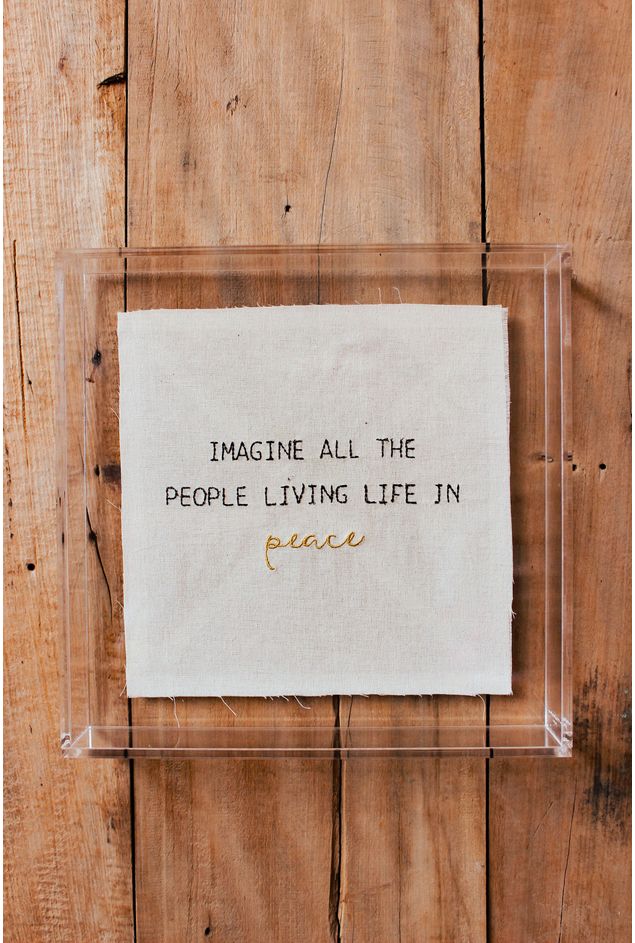 IMAGINE ALL THE
PEOPLE LIVING LIFE IN
peace